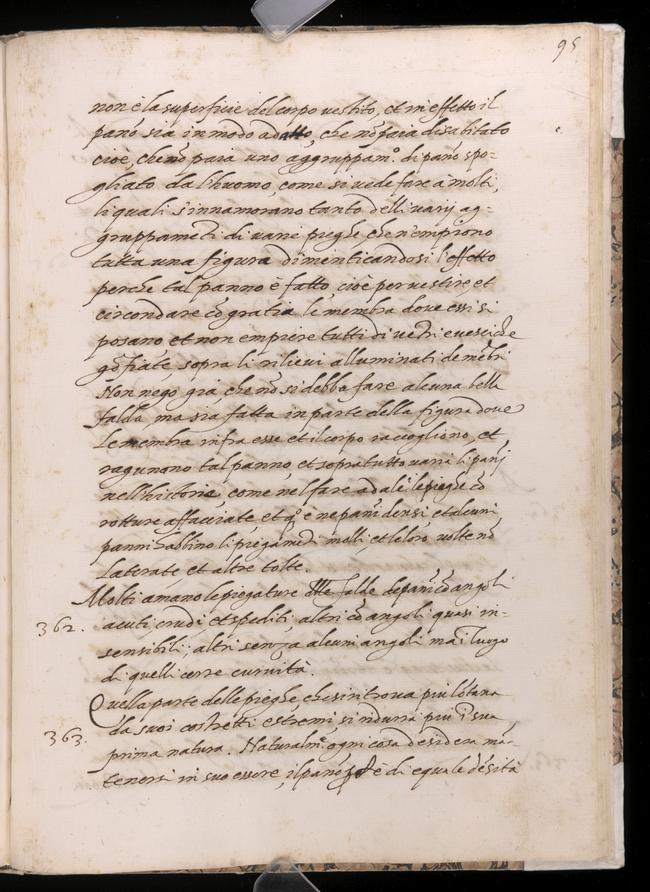 95
non è la superficie del corpo vestito, et in effetto il
pano sia in modo adatto, che nõ paia disabitato
cioè, che nõ paia uno aggruppam.º di pano spo-
gliato da l'huomo, come si vede fare à molti,
li quali s'innamorano tanto delli varij ag-
gruppamēti di varie pieghe, che n'empiono
tutta una figura dimenticandosi l'effetto
perche tal panno è fatto, cioè per vestire et
circondare cõ gratia le membra dove essi si
posano et non empiere tutti di vētri e vesciche
gõfiate sopra li rilievi alluminati de mēbri
Non nego già, che nõ si debba fare alcuna bella
falda, ma sia fatta in parte della figura dove
le membra infra esse et il corpo raccogliono, et
ragunono tal panno, et sopra tutto varia li panj
nell'historie, come nel fare ad alc.i le pieghe cõ
rotture affacciate, et q.º è ne pani densi et alcuni
panni habbino li piegamēti molli, et le loro volte nõ
laterate et altre torte.
Molti amano le piegature delle falde de pani cõ angoli
362. acuti, crudi et spediti, altri cõ angoli quasi in-
sensibili, altri senza alcuni angoli ma ī luogo
di quelli certe curvità.
Quella parte delle pieghe, che si ritrova piu lõtana
363. da suoi costretti estremi si ridurrà piu ī sua
prima natura. Naturalm.e ogni cosa desidera mã-
tenersi in suo essere, il pano è di equale dēsità